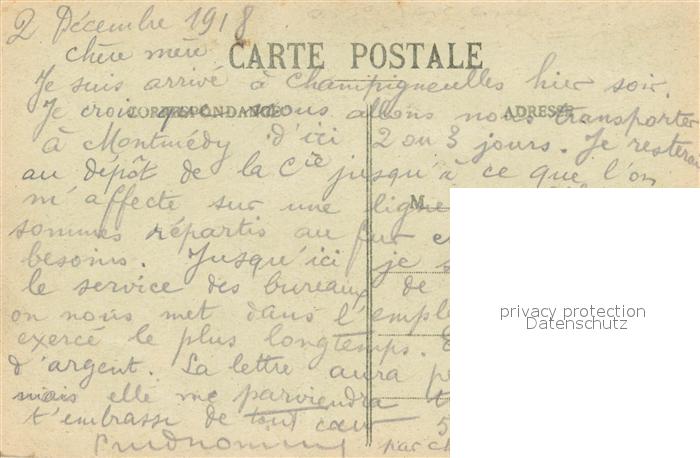 2 Décembre 1918
chère mère
CARTE POSTALE
Je suis arrivé à Champigneulles hier soir.
Je crois que nous allons nous transporter
CORRESPONDANCE
ADRESSE
à Montmédy d'ici 2 ou 3 jours. Je resterai
au dépôt de la Cie jusqu'à ce que l'on
m'affecte sur une ligne
M.
sommes répartis au fur
besoins. Jusqu'ici je
le service des bureaux de
on nous met dans l'emplo
exercé le plus longtemps.
d'argent. La lettre aura
mais elle me parviendra
t'embrasse de tout cœur 5
Prudhomme par ch
privacy protection
Datenschutz